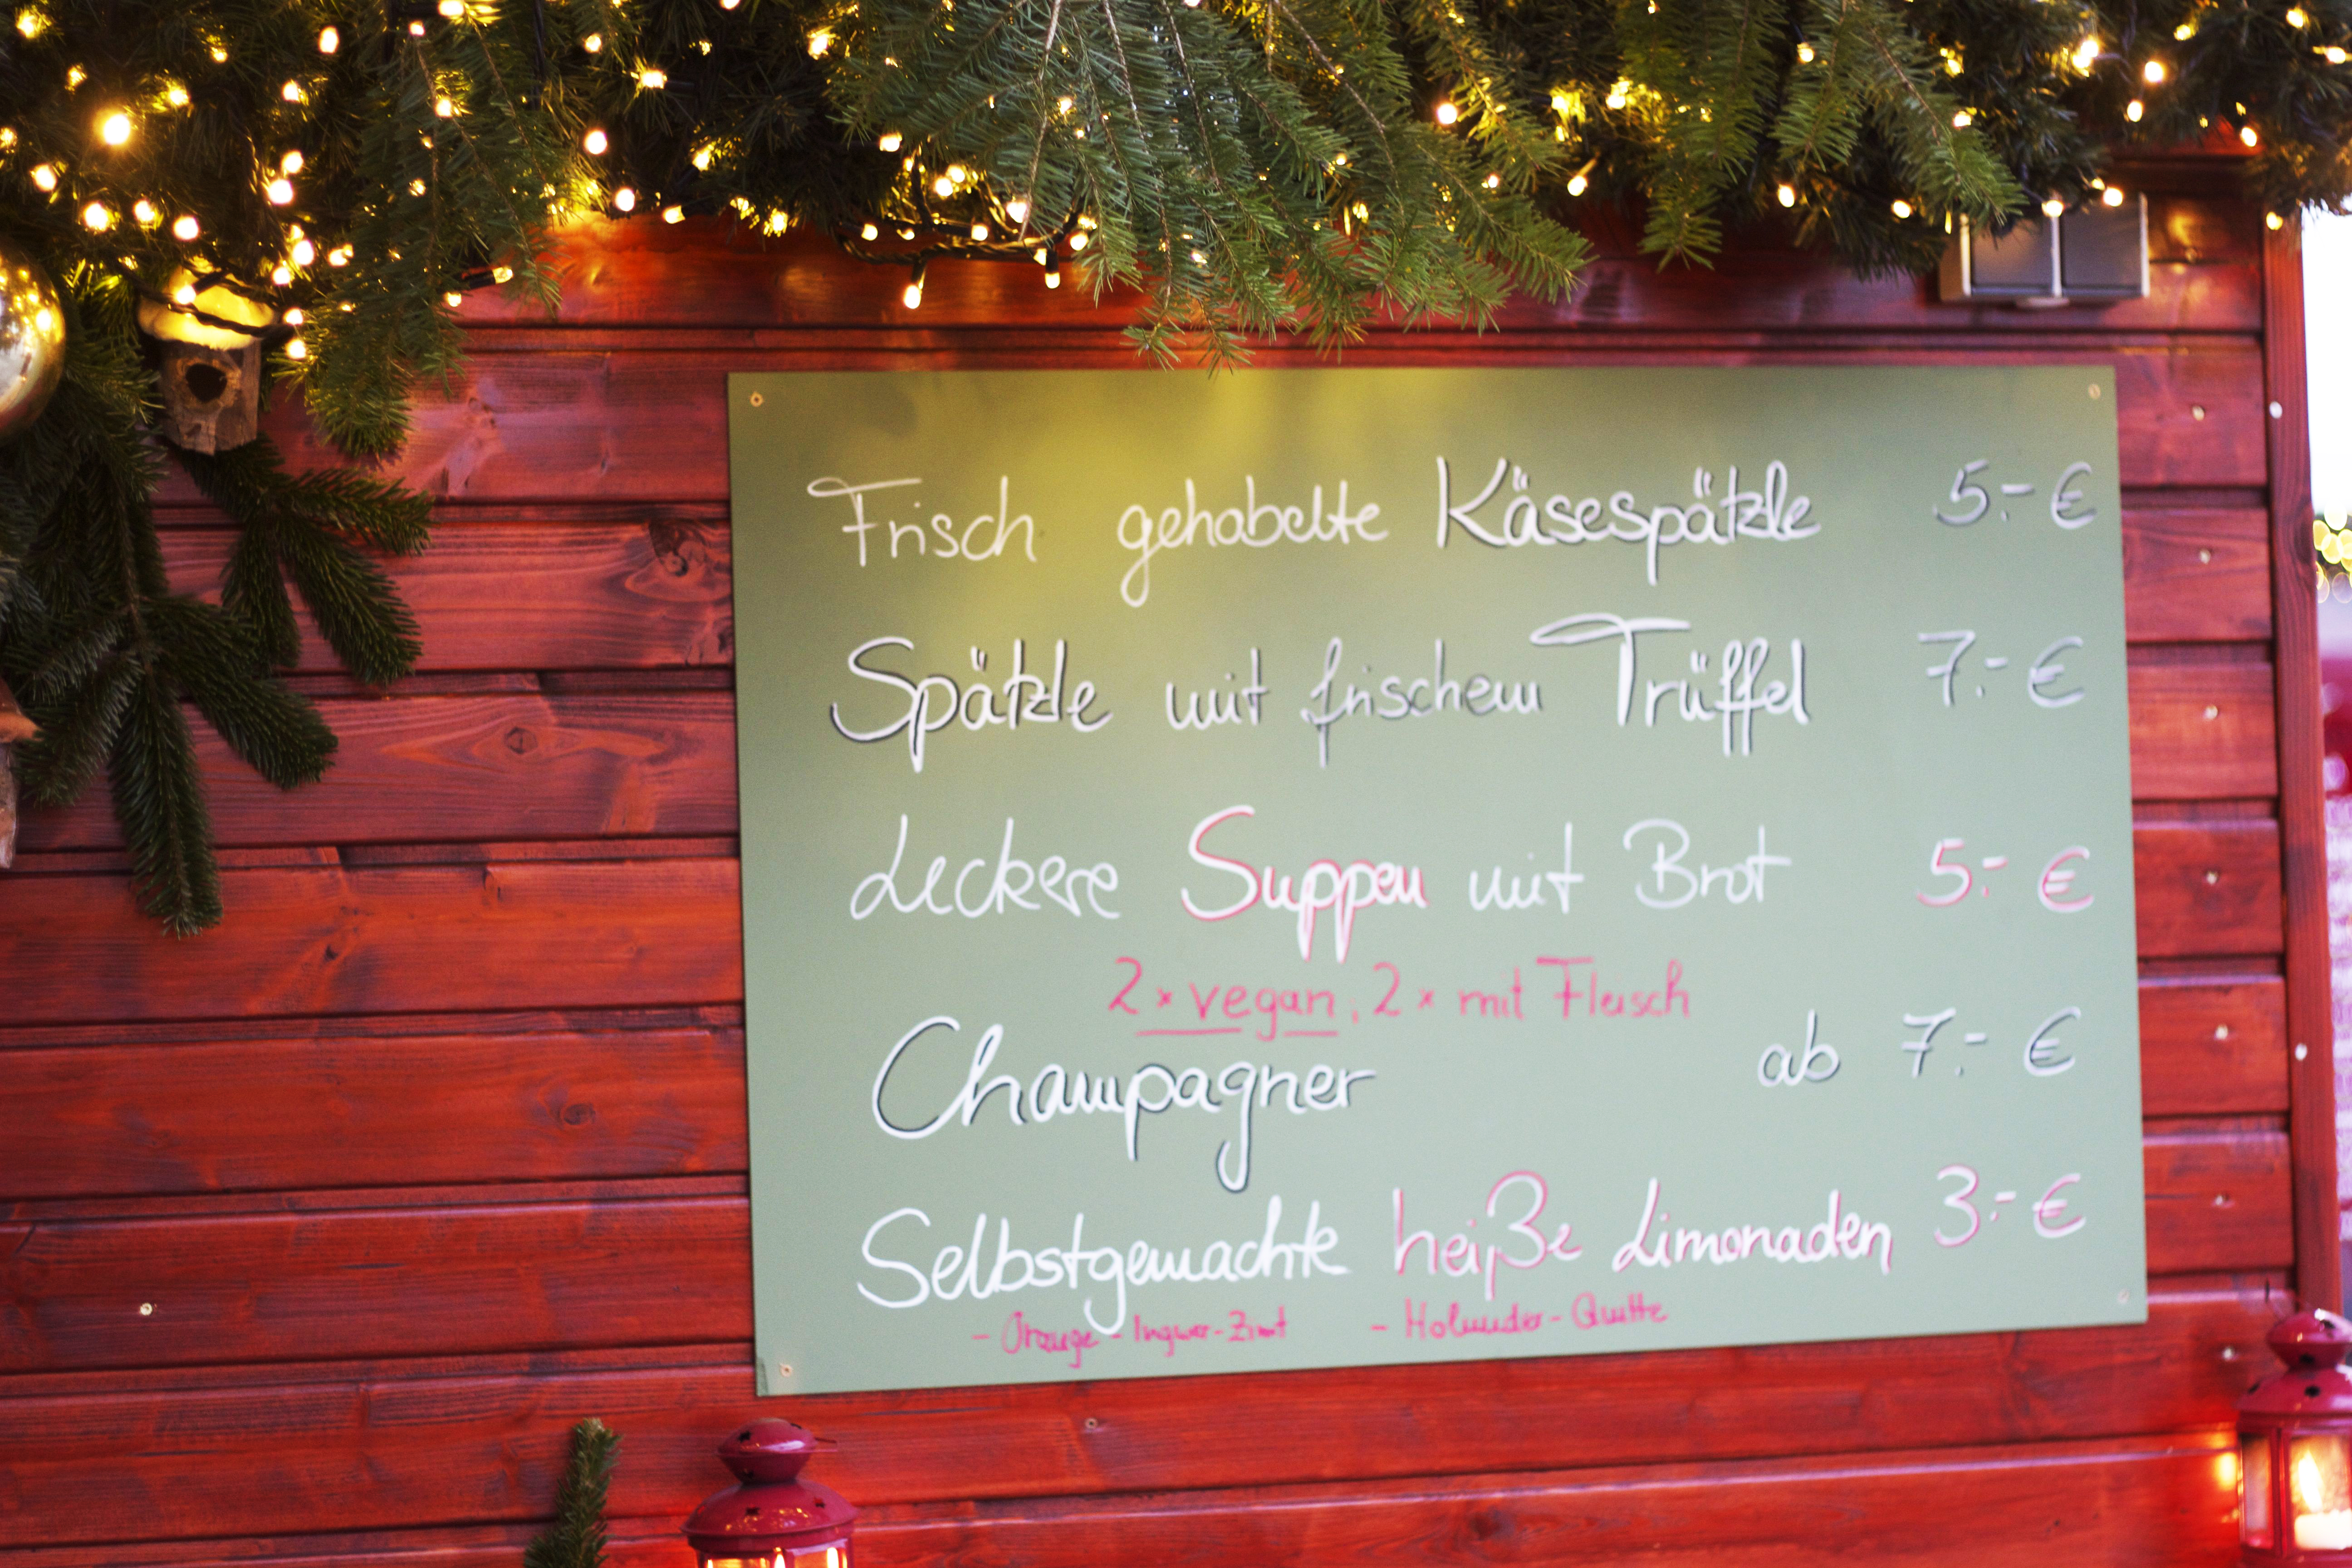 Frisch gehobelte Käsespätzle 5.- €
Spätzle mit frischem Trüffel 7.- €
Leckere Suppen mit Brot 5.- €
2 x vegan, 2 x mit Fleisch
Champagner ab 7.- €
Selbstgemachte heiße Limonaden 3.- €
- Orange - Ingwer - Zimt - Holunder - Quitte